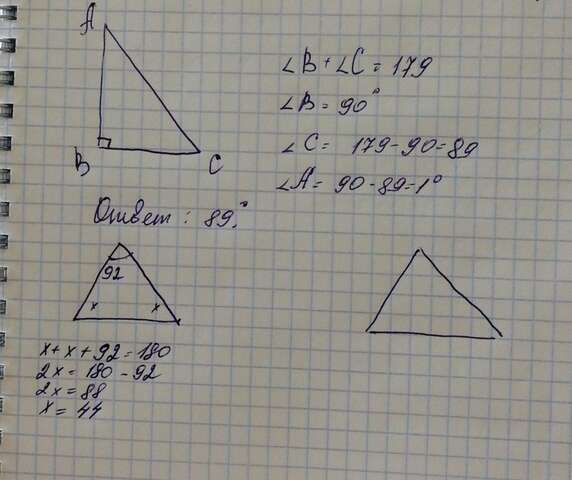 A
B
C
∠B + ∠C = 179
∠B = 90°
∠C = 179 - 90 = 89
∠A = 90 - 89 = 1°
Ответ : 89°.
92
x x
x + x + 92 = 180
2x = 180 - 92
2x = 88
x = 44